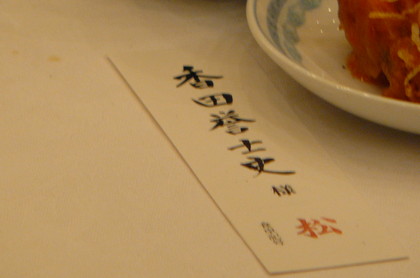 香田誉士史 様
松